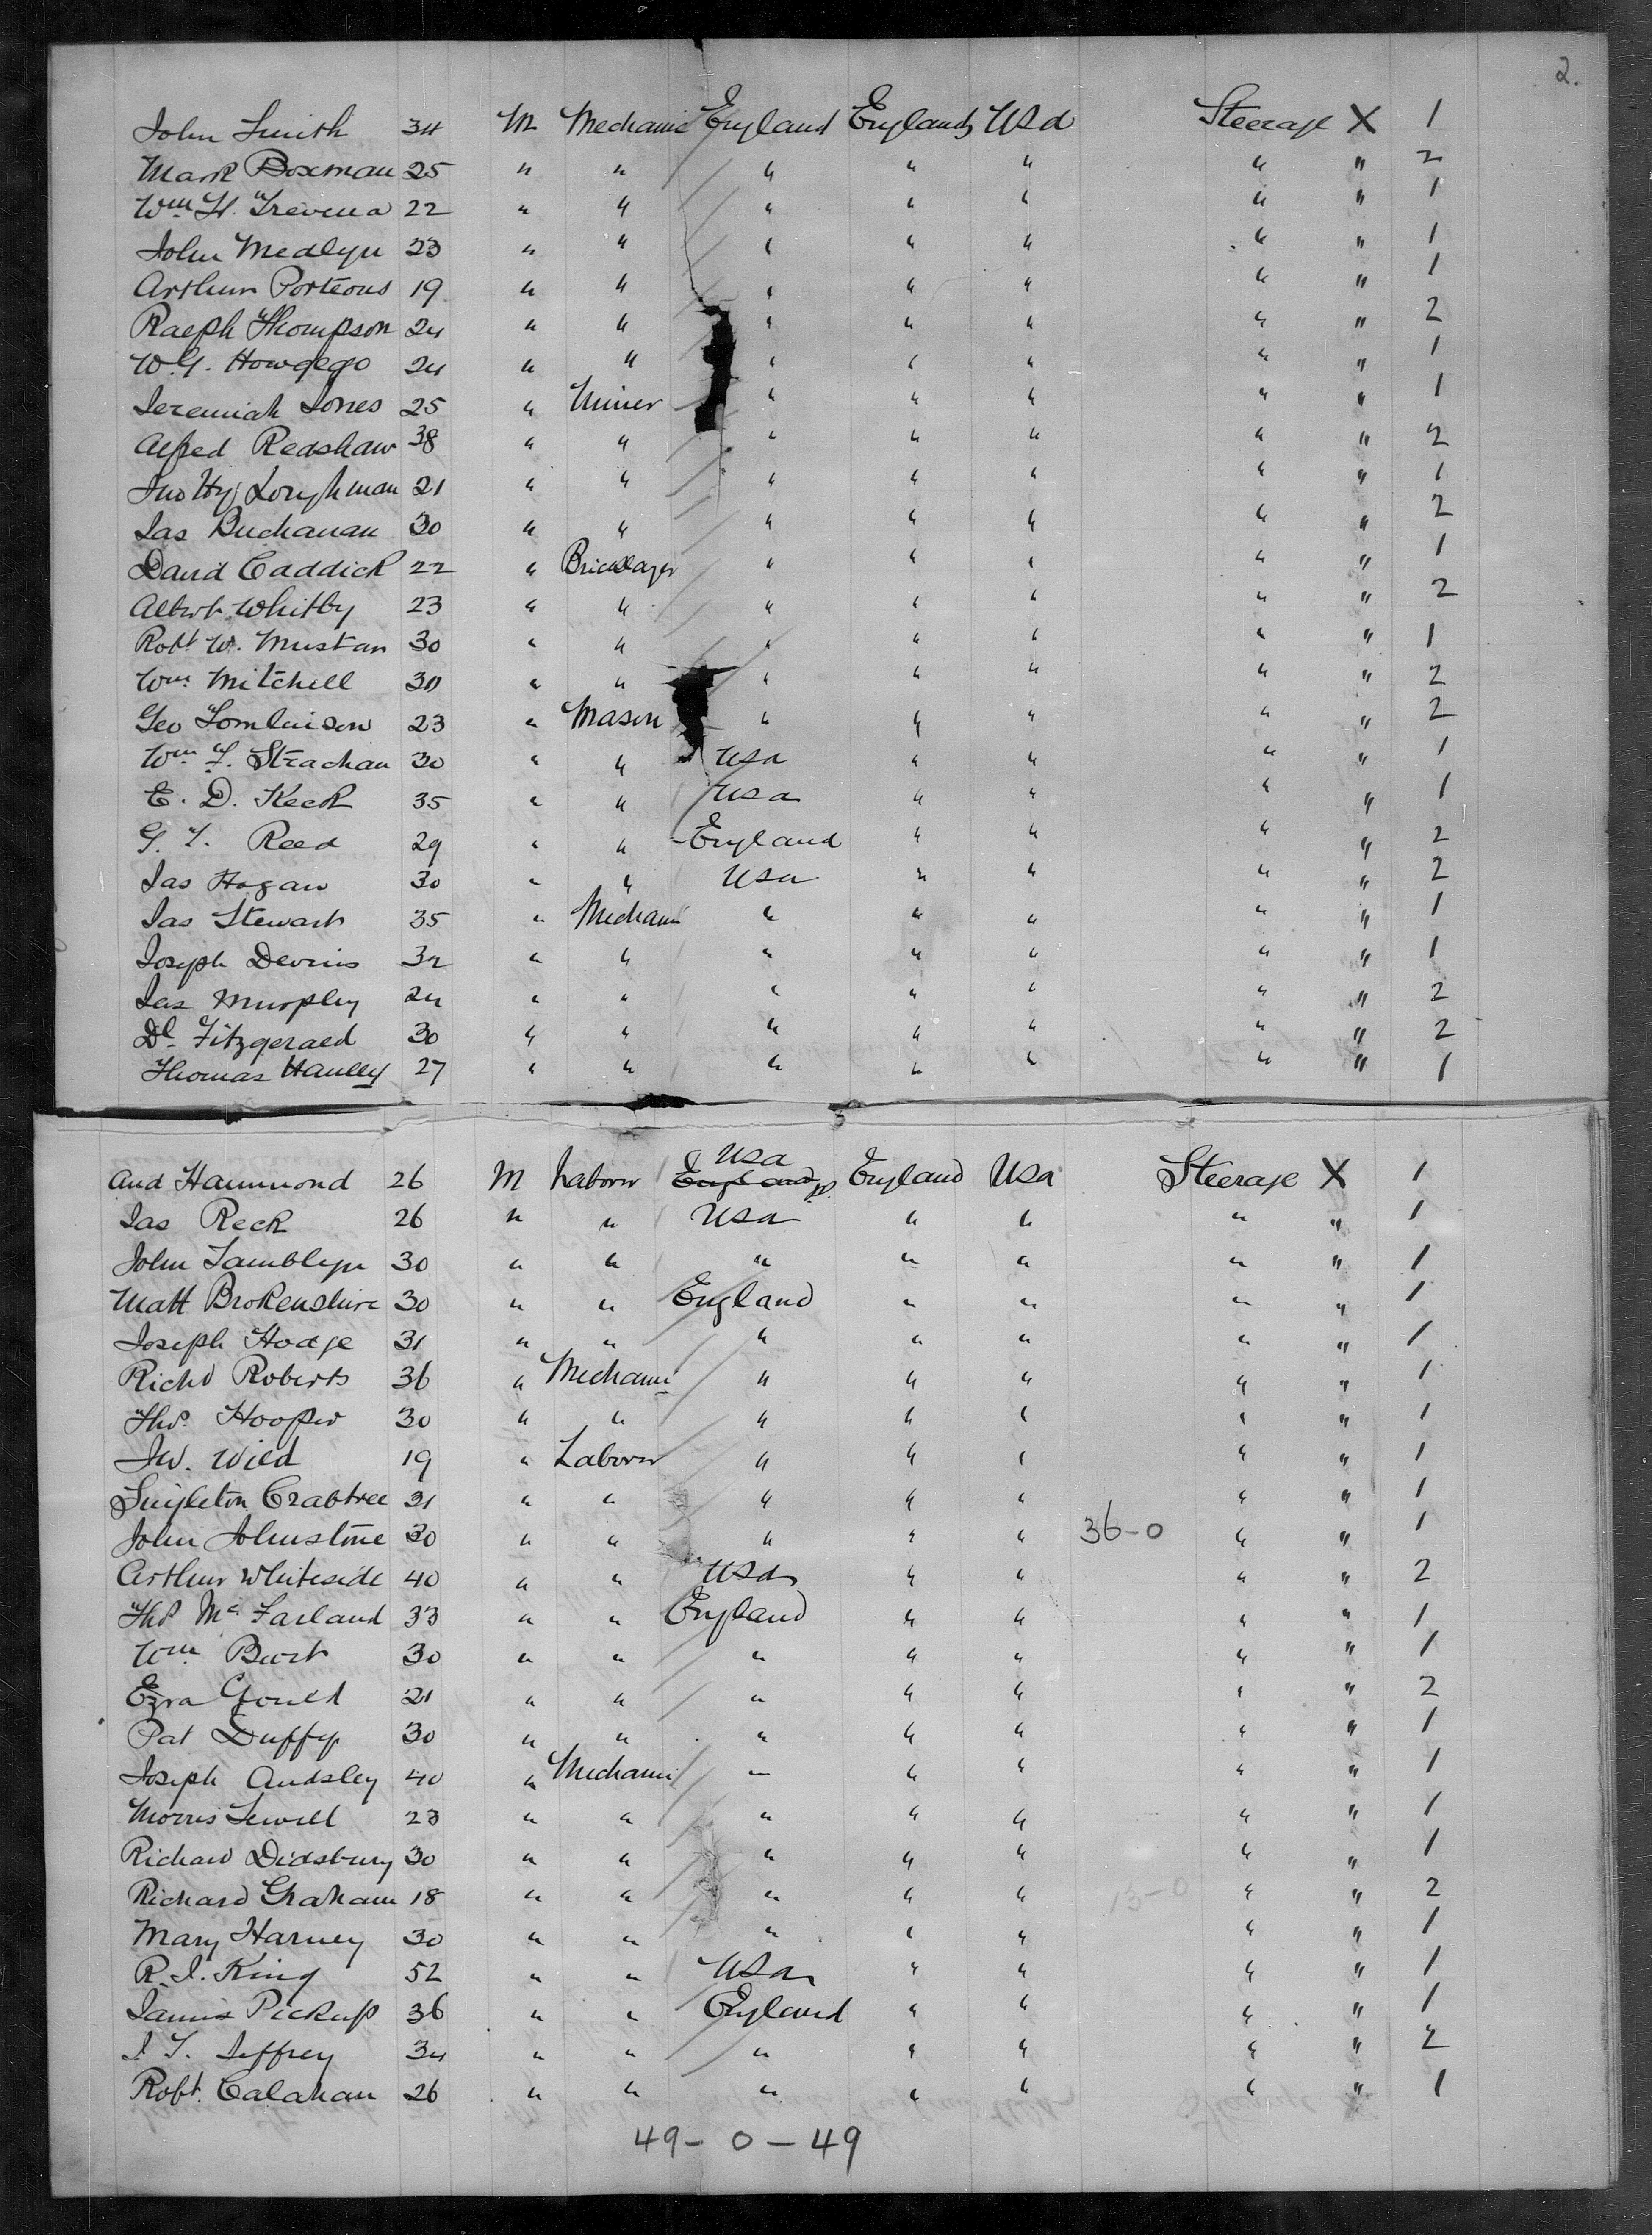 2.
John Smith 34 M Mechanic England England USa Steerage X 1
Mark Boxman 25 " " " " " " " 2
Wm H. Trevena 22 " " " " " " " 1
John Medlyn 23 " " " " " " " 1
Arthur Porteous 19 " " " " " " " 1
Raeph Thompson 24 " " " " " " " 2
W.G. Howgego 24 " " " " " " " 1
Jeremiah Jones 25 " Miner " " " " " 1
Alfred Redshaw 38 " " " " " " " 2
Jno Hy Loughman 21 " " " " " " " 1
Jas Buchanan 30 " " " " " " " 2
David Caddick 22 " Bricklayer " " " " " 1
Albert Whitby 23 " " " " " " " 2
Robt W. Mustan 30 " " " " " " " 1
Wm Mitchell 30 " " " " " " " 2
Geo Tomlinson 23 " Mason " " " " " 2
Wm T. Strachan 30 " " USa " " " " 1
E. D. Keck 35 " " USa " " " " 1
G. T. Reed 29 " " England " " " " 2
Jas Hogan 30 " " USa " " " " 2
Jas Stewart 35 " Mechanic " " " " " 1
Joseph Devins 32 " " " " " " " 1
Jas Murphy 24 " " " " " " " 2
Dl Fitzgerald 30 " " " " " " " 2
Thomas Haulley 27 " " " " " " " 1
USa
And Hammond 26 M Laborer England England USa Steerage X 1
Jas Reck 26 " " USa " " " " 1
John Tamblyn 30 " " " " " " " 1
Matt Brokenshire 30 " " England " " " " 1
Joseph Hodge 31 " " " " " " " 1
Richd Roberts 36 " Mechanic " " " " " 1
Thos. Hooper 30 " " " " " " " 1
Jw. Wild 19 " Laborer " " " " " 1
Singleton Crabtree 31 " " " " " " " 1
John Johnstone 30 " " " " " 36-0 " " 1
Arthur Whiteside 40 " " USa " " " " 2
Thos McFarland 33 " " England " " " " 1
Wm Burt 30 " " " " " " " 1
Ezra Gould 21 " " " " " " " 2
Pat Duffy 30 " " " " " " " 1
Joseph Audsley 40 " Mechanic " " " " " 1
Morris Sewell 23 " " " " " " " 1
Richard Didsbury 30 " " " " " " " 1
Richard Graham 18 " " " " " 13-0 " " 2
Mary Harney 30 " " " " " " " 1
R. J. King 52 " " USa " " " " 1
James Pickup 36 " " England " " " " 1
J T. Jeffrey 34 " " " " " " " 2
Robt. Calahan 26 " " " " " " " 1
49- 0 - 49